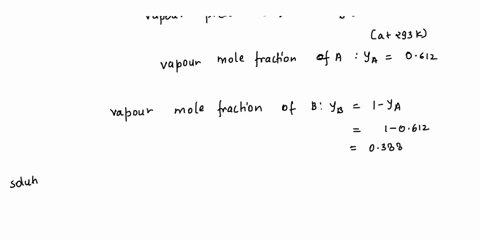 vapour
(at 293K)
vapour mole fraction of A : yA = 0.612
vapour mole fraction of B: yB = 1-yA
= 1-0.612
= 0.388
soluh